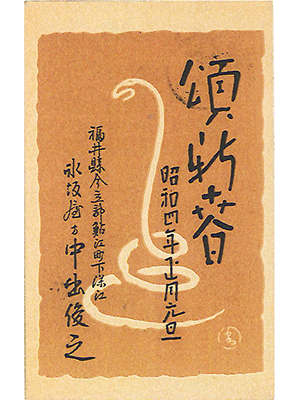 頌新春
昭和四年正月元旦
福井縣今立郡鯖江町下深江
坂屋方中出俊之